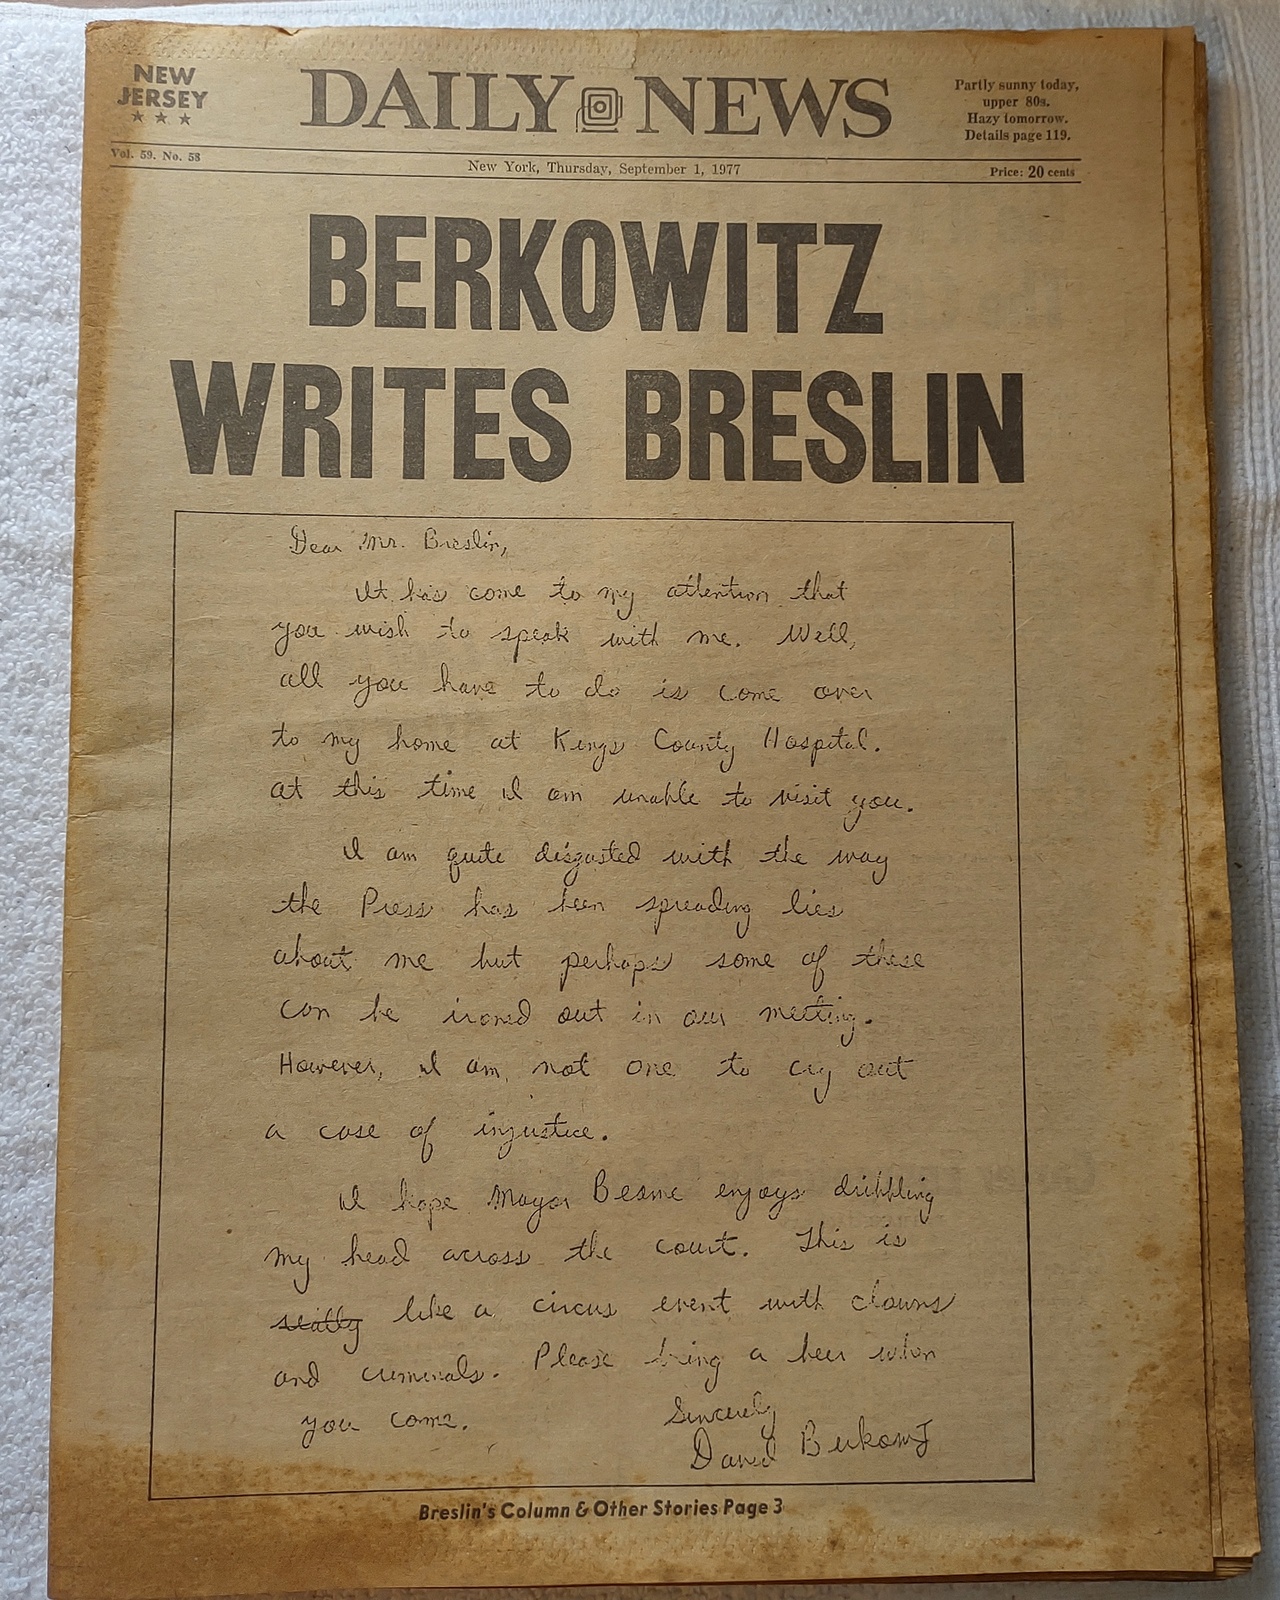 NEW
JERSEY
★ ★ ★
DAILY NEWS
Partly sunny today,
upper 80s.
Hazy tomorrow.
Details page 119.
Vol. 59. No. 58
New York, Thursday, September 1, 1977
Price: 20 cents
BERKOWITZ
WRITES BRESLIN
Dear Mr. Breslin,
It has come to my attention that
you wish to speak with me. Well,
all you have to do is come over
to my home at Kings County Hospital.
At this time I am unable to visit you.
I am quite disgusted with the way
the Press has been spreading lies
about me but perhaps some of these
can be ironed out in our meeting.
However, I am not one to cry out
a case of injustice.
I hope Mayor Beame enjoys dribbling
my head across the court. This is
like a circus event with clowns
and criminals. Please bring a beer when
you come.
Sincerely
David Berkowitz
Breslin's Column & Other Stories Page 3